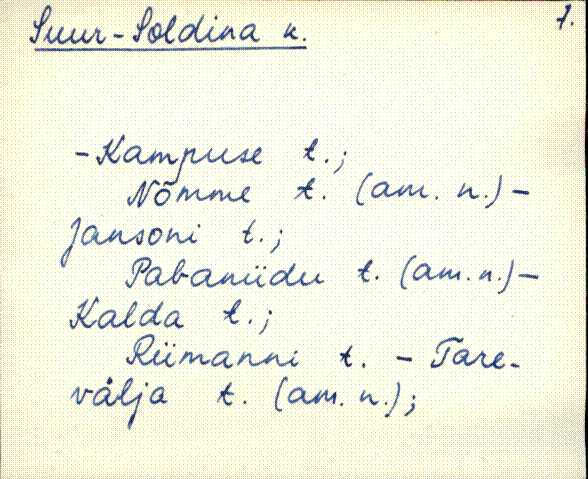 Suur-Soldina k. 7.
-Kampuse t.;
Nõmme t. (am. n.) -
Jansoni t.;
Pabaniidu t. (am.n.) -
Kalda t.;
Riimanni t. - Tare-
välja t. (am. n.);